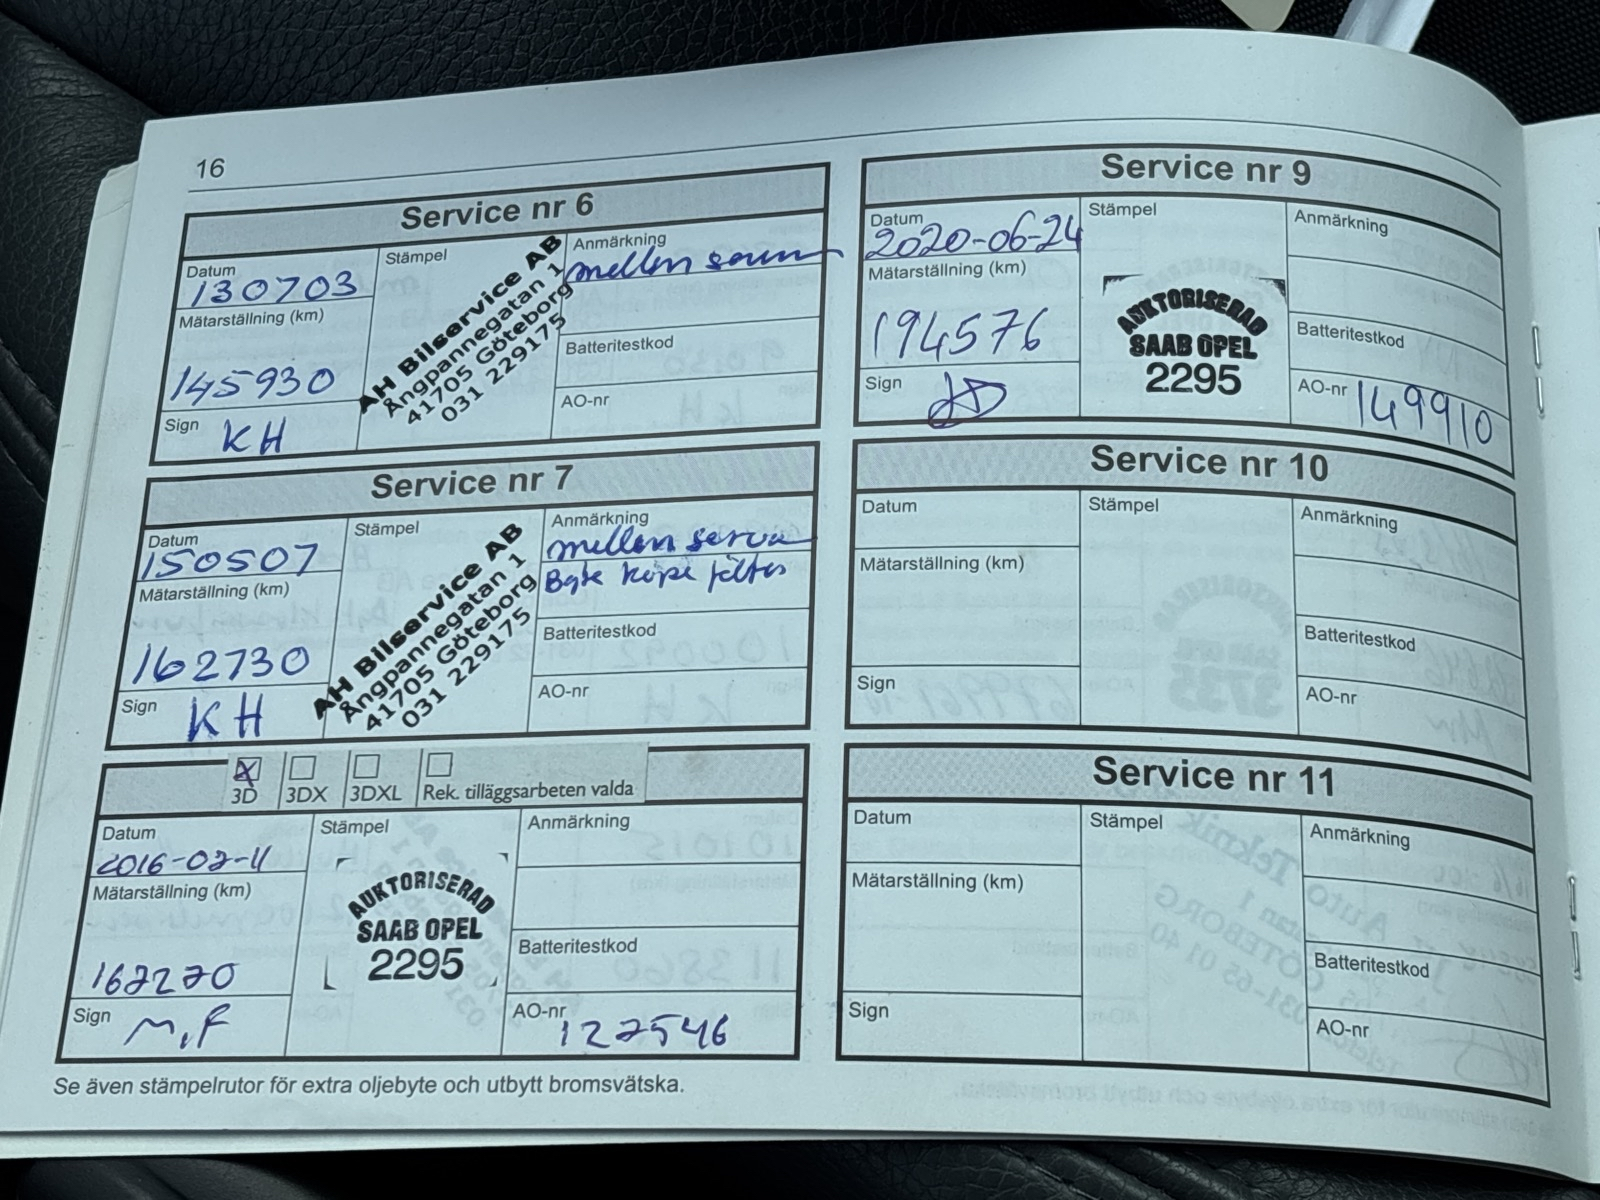 16
Service nr 6
Datum
130703
Mätarställning (km)
145930
Sign
KH
Stämpel
AH Bilservice AB
Ångpannegatan 1
41705 Göteborg
031 229175
Anmärkning
mellan
Batteritestkod
AO-nr
Service nr 7
Datum
150507
Mätarställning (km)
162730
Sign
KH
Stämpel
AH Bilservice AB
Ångpannegatan 1
41705 Göteborg
031 229175
Anmärkning
mellan
Byte
Batteritestkod
AO-nr
3D
3DX
3DXL
Rek. tilläggsarbeten valda
Datum
2016-02-11
Mätarställning (km)
167270
Sign
M,F
Stämpel
AUKTORISERAD
SAAB OPEL
2295
Anmärkning
Batteritestkod
AO-nr
127546
Se även stämpelrutor för extra oljebyte och utbytt bromsvätska.
Service nr 9
Datum
2020-06-24
Mätarställning (km)
194576
Sign
Stämpel
AUKTORISERAD
SAAB OPEL
2295
Anmärkning
Batteritestkod
AO-nr
149910
Service nr 10
Datum
Mätarställning (km)
Sign
Stämpel
Anmärkning
Batteritestkod
AO-nr
Service nr 11
Datum
Mätarställning (km)
Sign
Stämpel
Anmärkning
Batteritestkod
AO-nr